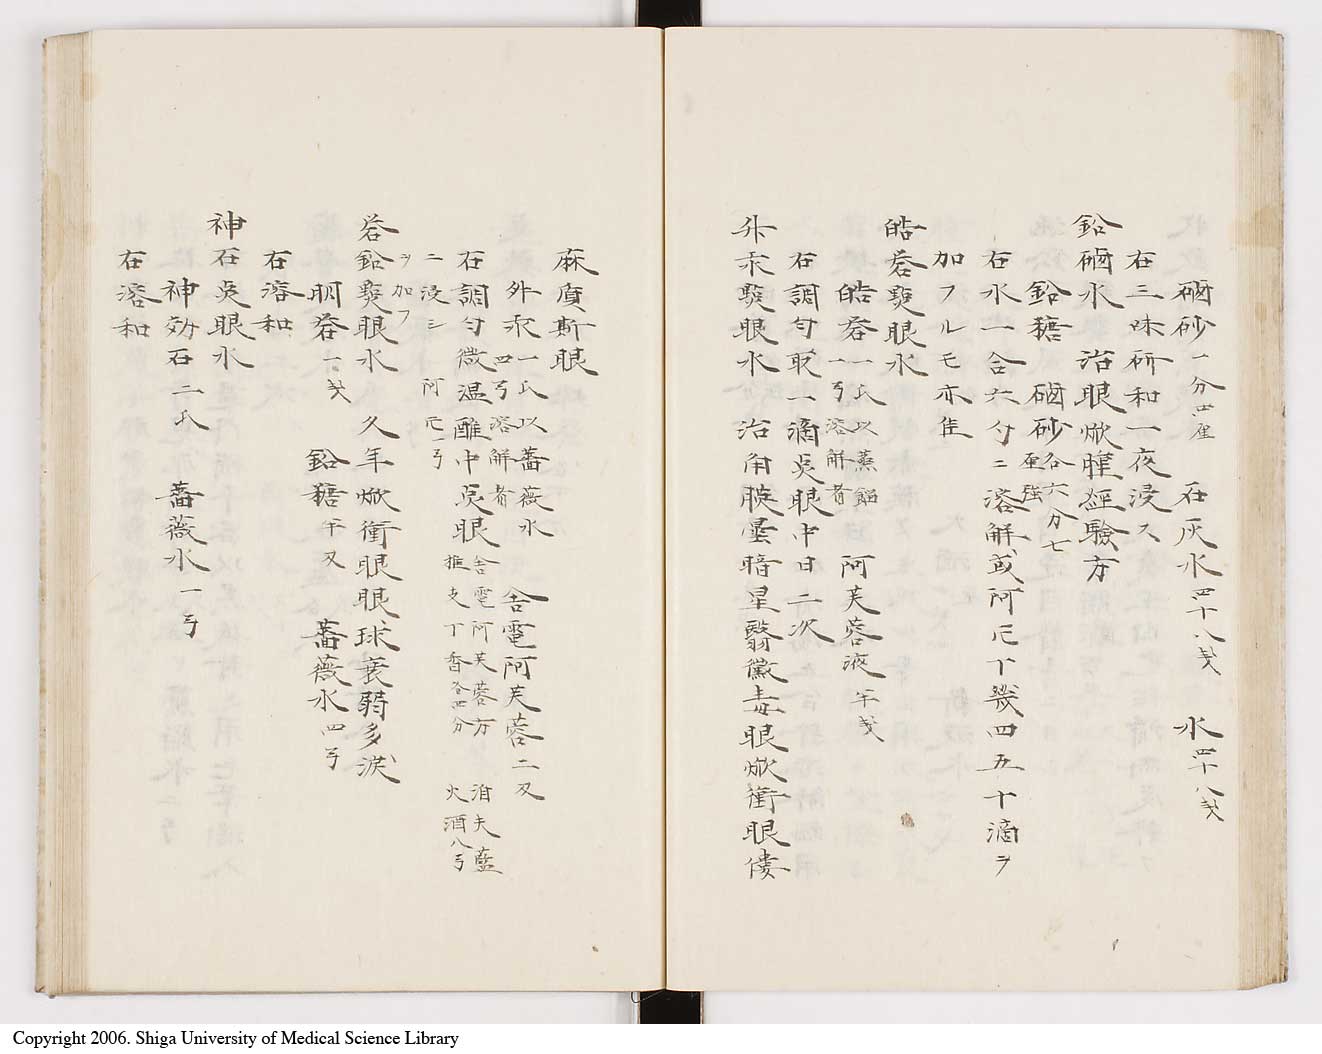 硇砂一分四厘 石灰水四十八戔 水四十八戔
右三味研和一夜浸ス
鉛硇水 治眼焮腫経験方
鉛糖 硇砂各六分七厘強
右水一合六勺ニ溶解或阿片丁幾四五十滴ヲ
加フルモ亦佳
皓礬験眼水
皓礬一氏以蒸餾一弓溶解者 阿芙蓉液半戔
右調匀取一滴点眼中日二次
升汞験眼水 治角膜曇暗星翳黴毒眼焮衝眼僂
麻質斯眼
升汞一氏以薔薇水四弓溶解者 舎電阿芙蓉二刄
右調匀微温醮中点眼 舎電阿芙蓉方 泊夫藍 桂支丁香各四分 火酒八弓
ニ浸シ 阿片一弓
ヲ加フ
礬鉛験眼水 久年焮衝眼眼球衰弱多涙
明礬一戔 鉛糖半刄 薔薇水四弓
右溶和
神石点眼水
神効石二氏 薔薇水一弓
右溶和
Copyright 2006. Shiga University of Medical Science Library